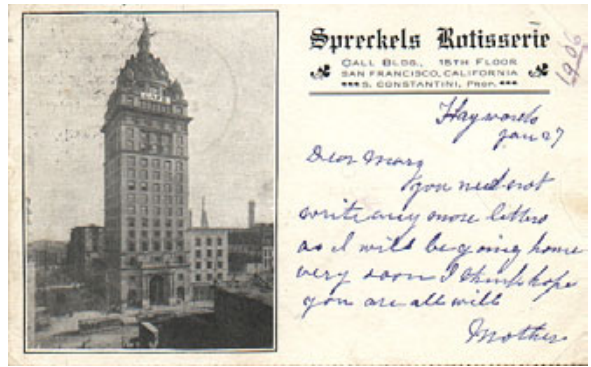 Spreckels Rotisserie
CALL BLDG., 15TH FLOOR
SAN FRANCISCO, CALIFORNIA
S. CONSTANTINI, PROP.
1906
Haywards
Jan 27
Dear Mary
you need not
write any more letters
as I will be going home
very soon I think hope
you are all well
Mother
CAFE